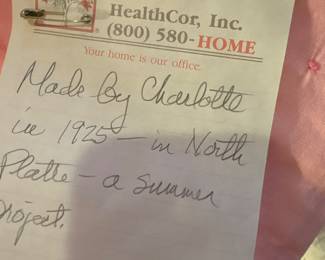 HealthCor, Inc.
(800) 580-HOME
Your home is our office.
Made by Charlotte
in 1925 — in North
Platte — a summer
project.